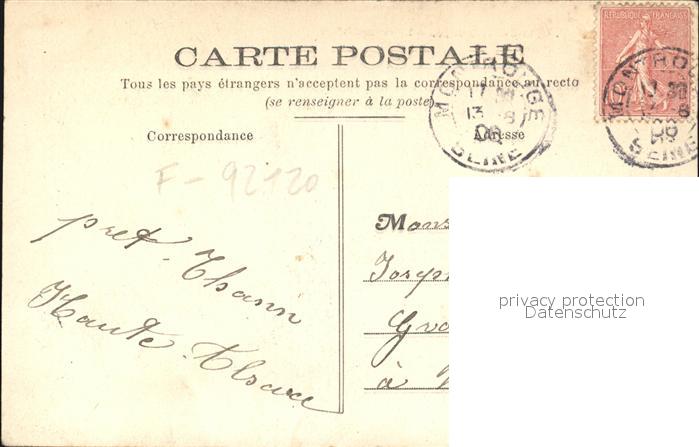 REPUBLIQUE FRANÇAISE
CARTE POSTALE
Tous les pays étrangers n'acceptent pas la correspondance au recto
(se renseigner à la poste)
MONTROUGE
SEINE
MONTRO
SEINE
Correspondance
Adresse
F-92120
Mons
Joseph
à
près. Thann
Haute-Alsace
privacy protection
Datenschutz